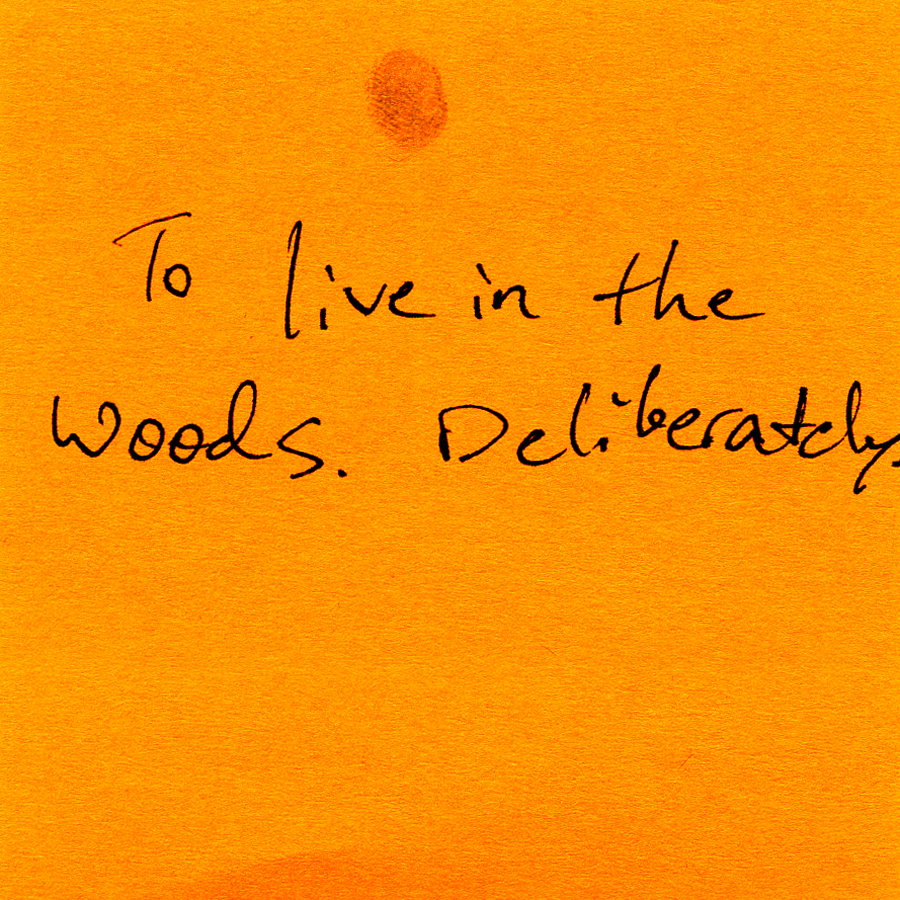 To live in the
Woods. Deliberately